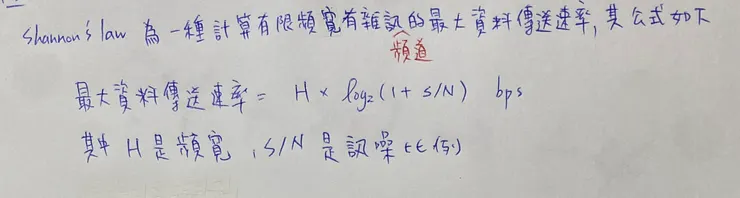 Shannon's law 為一種計算有限頻寬有雜訊頻道的最大資料傳送速率,其公式如下
最大資料傳送速率 = H × log₂(1 + S/N) bps
其中 H 是頻寬,S/N 是訊噪比例